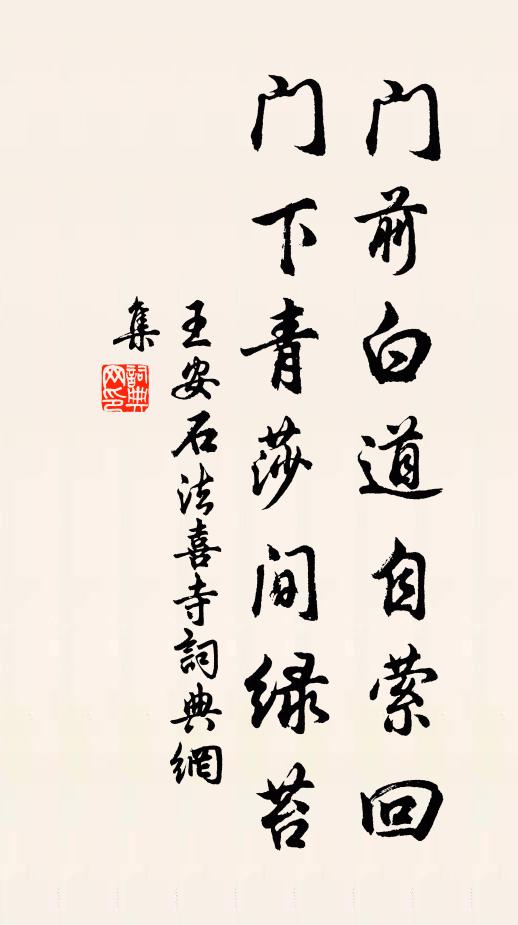 门前白道自萦回
门下青莎间绿苔
王安石法喜寺詞典網
集
詞典
网印